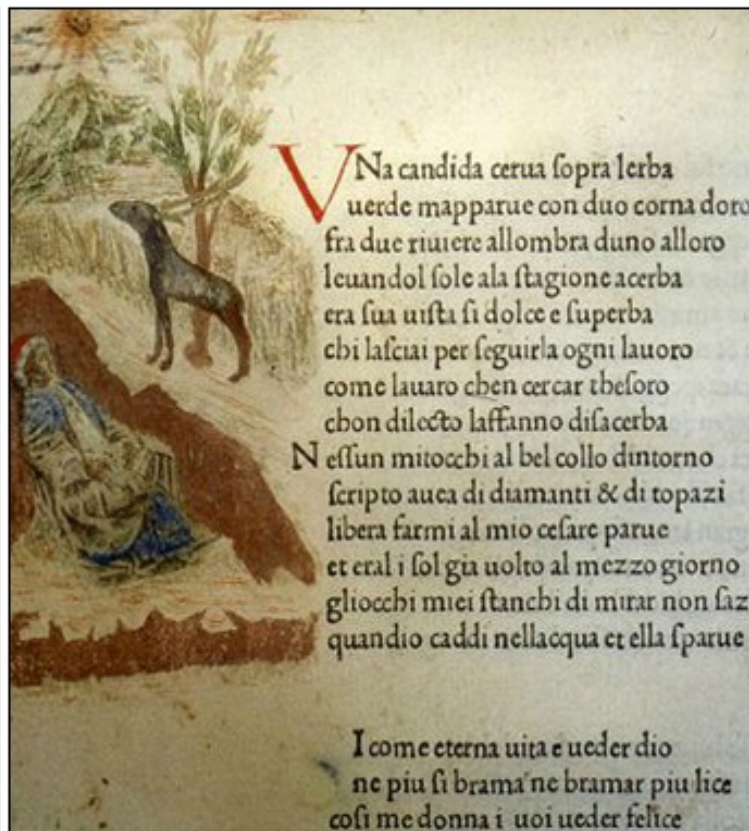 VNa candida cerua ſopra lerba
uerde mapparue con duo corna doro
fra due riuiere allombra duno alloro
leuandol ſole ala ſtagione acerba
era ſua uiſta ſi dolce e ſuperba
chi laſciai per ſeguirla ogni lauoro
come lauaro chen cercar theſoro
chon dilecto laffanno diſacerba
Neſſun mitocchi al bel collo dintorno
ſcripto auea di diamanti & di topazi
libera farmi al mio ceſare parue
et eral i ſol gia uolto al mezzo giorno
gliocchi miei ſtanchi di mirar non ſaz
quandio caddi nellacqua et ella ſparue
I come eterna uita e ueder dio
ne piu ſi brama ne bramar piu lice
coſi me donna i uoi ueder felice